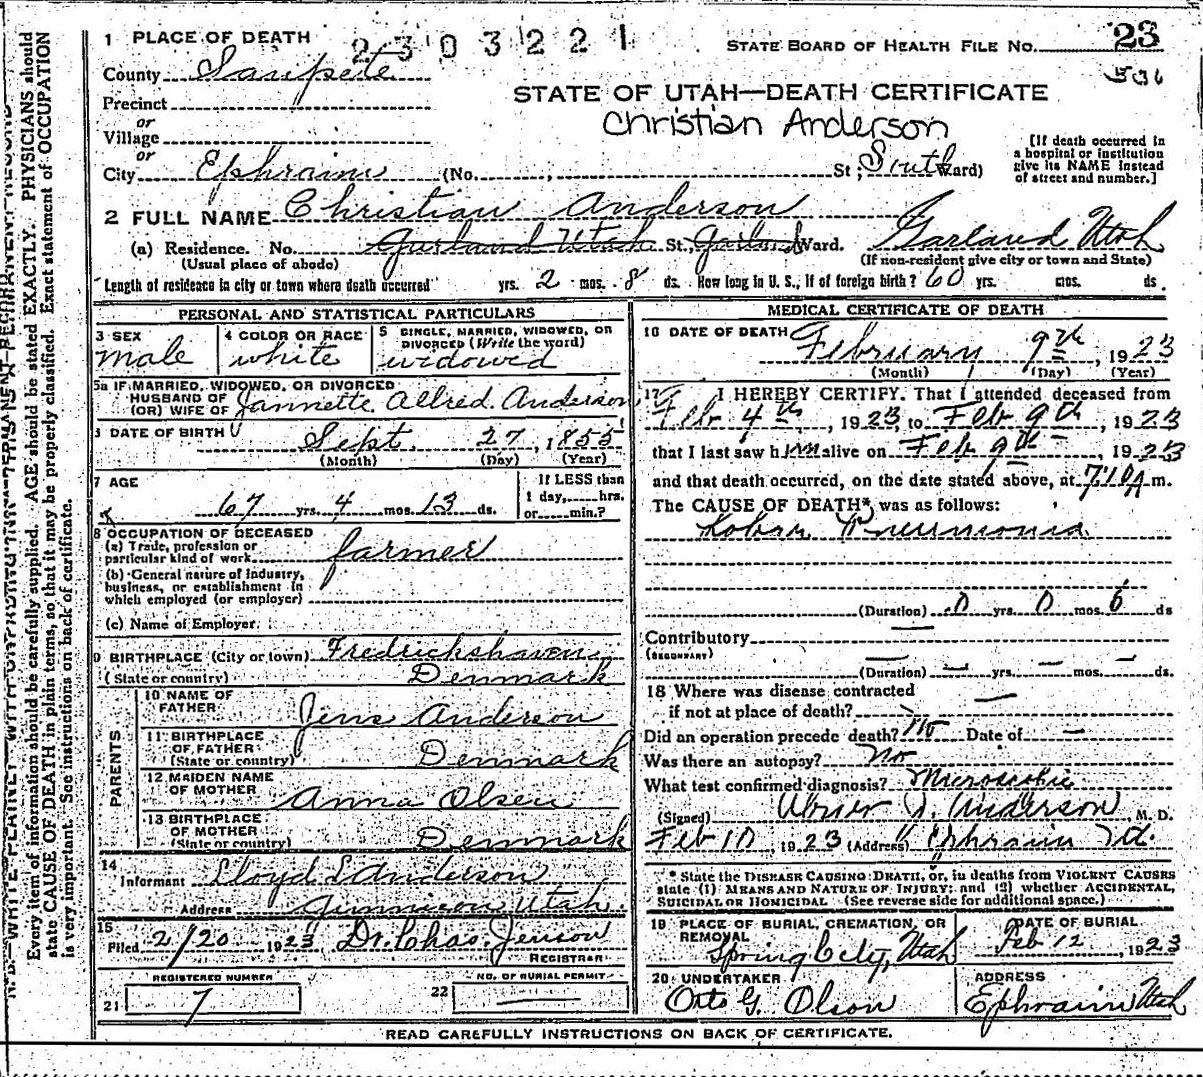 1 PLACE OF DEATH 2303221 STATE BOARD OF HEALTH FILE NO. 23
County Sanpete 536
STATE OF UTAH—DEATH CERTIFICATE
Precinct
or
Village
Christian Anderson
or
City Ephraim (No. St; South Ward)
[If death occurred in
a hospital or institution
give its NAME instead
of street and number.]
2 FULL NAME Christian Anderson
(a) Residence. No. Garland Utah St., Garland Ward. Garland Utah
(Usual place of abode) (If non-resident give city or town and State)
Length of residence in city or town where death occurred yrs. 2 mos. 8 ds. How long in U. S., if of foreign birth? 60 yrs. mos. ds.
PERSONAL AND STATISTICAL PARTICULARS
3 SEX
male
4 COLOR OR RACE
white
5 SINGLE, MARRIED, WIDOWED, OR
DIVORCED (Write the word)
widowed
5a IF MARRIED, WIDOWED, OR DIVORCED
HUSBAND OF
(OR) WIFE OF Jannette Allred Anderson
6 DATE OF BIRTH Sept. 27, 1855
(Month) (Day) (Year)
7 AGE
67 yrs. 4 mos. 13 ds.
If LESS than
1 day, hrs.
or min.?
8 OCCUPATION OF DECEASED
(a) Trade, profession or
particular kind of work farmer
(b) General nature of industry,
business, or establishment in
which employed (or employer)
(c) Name of Employer
9 BIRTHPLACE (City or town) Fredrickshaven
(State or country) Denmark
PARENTS
10 NAME OF
FATHER Jens Anderson
11 BIRTHPLACE
OF FATHER
(State or country) Denmark
12 MAIDEN NAME
OF MOTHER Anna Olsen
13 BIRTHPLACE
OF MOTHER
(State or country) Denmark
14
Informant Lloyd L Anderson
Address Gunnison Utah.
15
Filed 2/20 1923, Dr. Chas. Jenson
REGISTRAR
REGISTERED NUMBER
21 7
NO. OF BURIAL PERMIT
22
MEDICAL CERTIFICATE OF DEATH
16 DATE OF DEATH February 9th, 1923
(Month) (Day) (Year)
17 I HEREBY CERTIFY. That I attended deceased from
Feb 4th, 1923, to Feb 9th, 1923
that I last saw him alive on Feb 9th, 1923
and that death occurred, on the date stated above, at 7:10 A m.
The CAUSE OF DEATH* was as follows:
Lobar Pneumonia
(Duration) 0 yrs 0 mos 6 ds
Contributory —
(SECONDARY)
(Duration) — yrs. — mos. — ds.
18 Where was disease contracted
if not at place of death? —
Did an operation precede death? No Date of —
Was there an autopsy? No
What test confirmed diagnosis? Microscopic
(Signed) Anderson, M. D.
Feb 10, 1923 (Address) Ephraim Ut.
* State the DISEASE CAUSING DEATH, or, in deaths from VIOLENT CAUSES
state (1) MEANS AND NATURE OF INJURY; and (2) whether ACCIDENTAL,
SUICIDAL OR HOMICIDAL (See reverse side for additional space.)
19 PLACE OF BURIAL, CREMATION, OR
REMOVAL
Spring City, Utah
DATE OF BURIAL
Feb 12, 1923
20 UNDERTAKER
Otto G. Olson
ADDRESS
Ephraim Utah
READ CAREFULLY INSTRUCTIONS ON BACK OF CERTIFICATE.
Every item of information should be carefully supplied. AGE should be stated EXACTLY. PHYSICIANS should
state CAUSE OF DEATH in plain terms, so that it may be properly classified. Exact statement of OCCUPATION
is very important. See instructions on back of certificate.